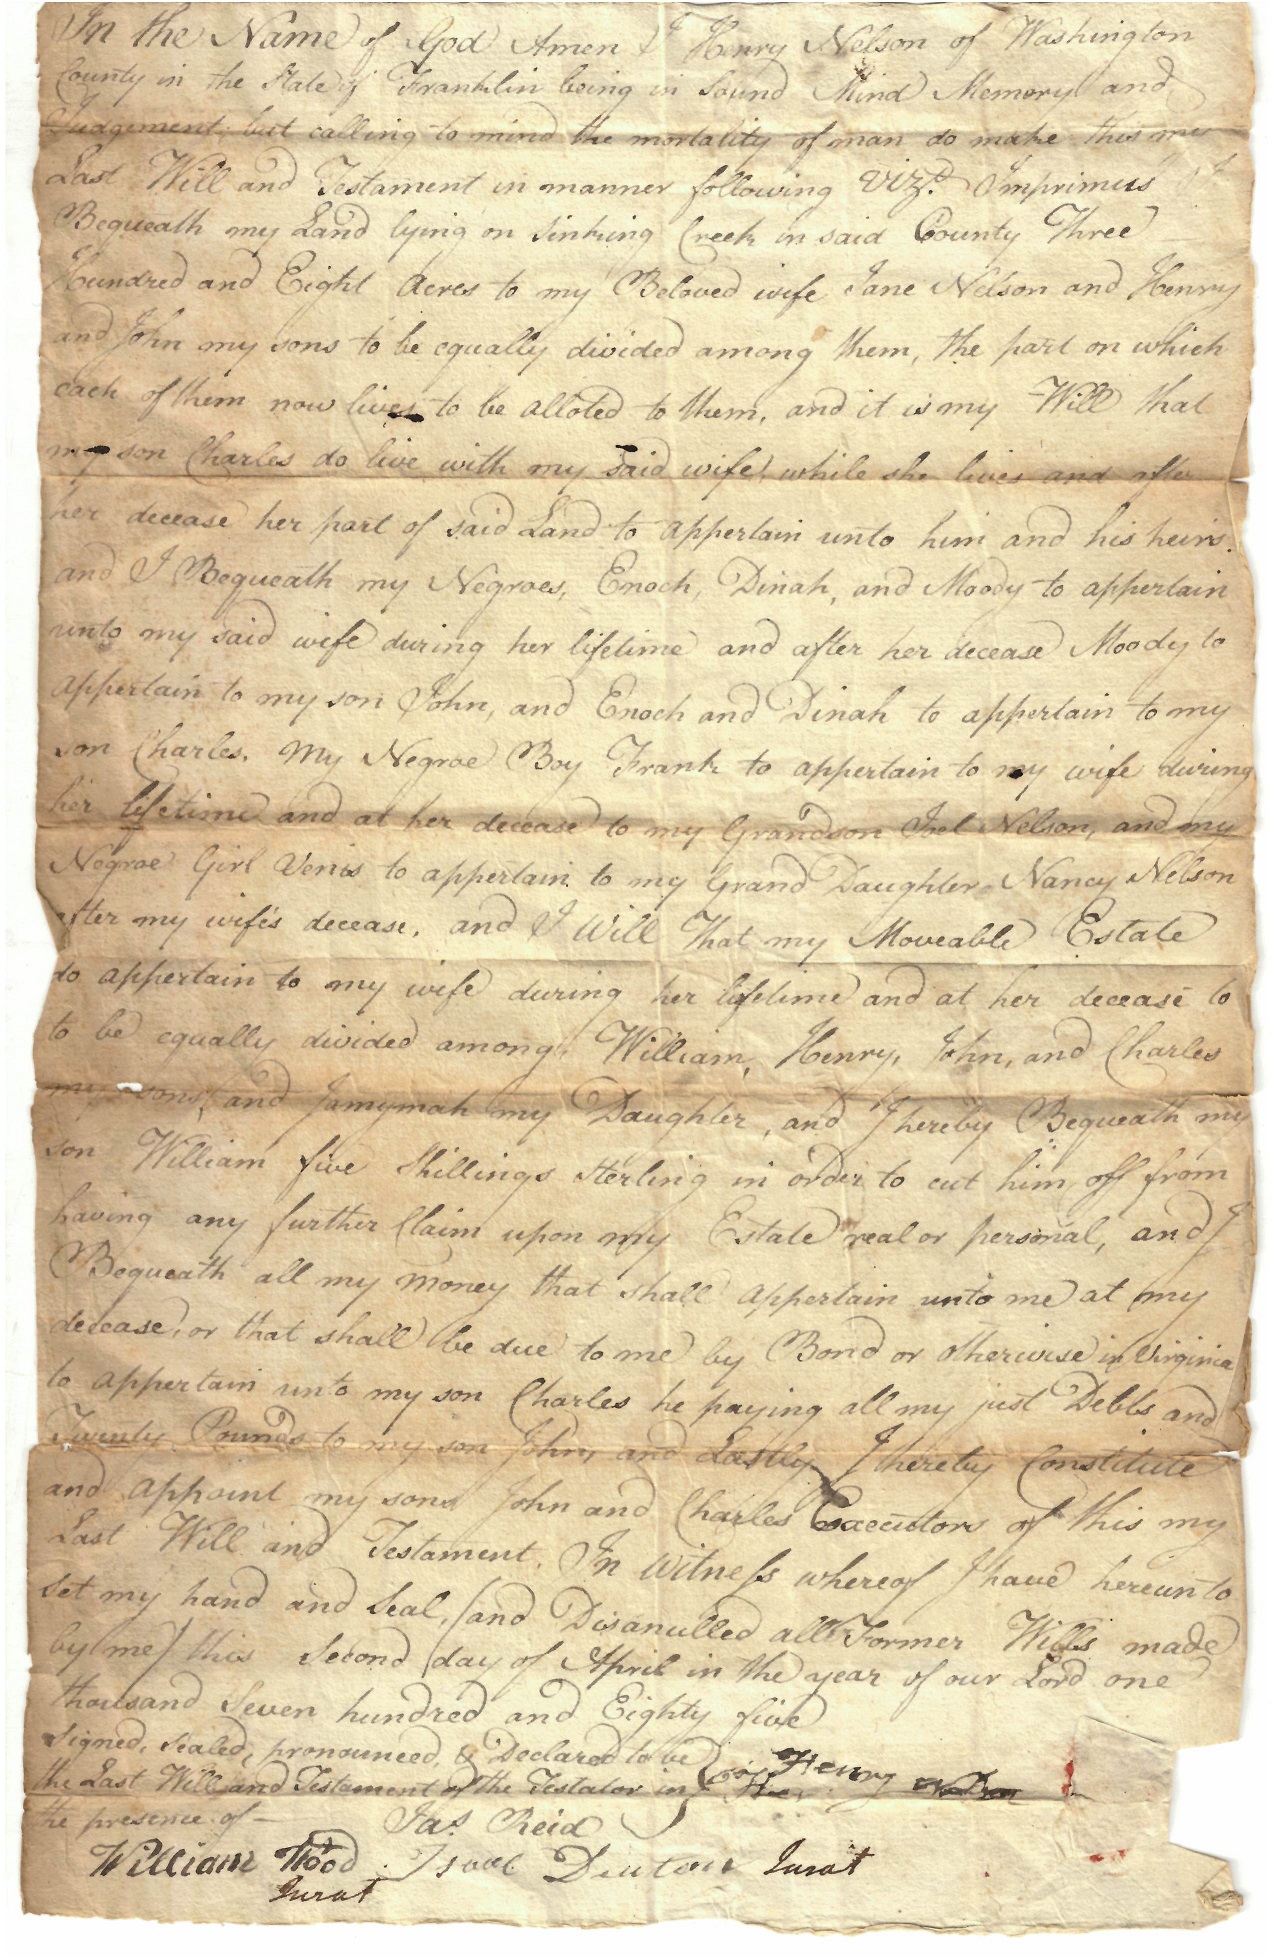 In the Name of God Amen I Henry Nelson of Washington
County in the State of Franklin being in Sound Mind Memory and
Judgement, but calling to mind the mortality of man do make this my
Last Will and Testament in manner following Vizt. Imprimus I
Bequeath my Land lying on Sinking Creek in said County Three
Hundred and Eight Acres to my Beloved wife Jane Nelson and Henry
and John my sons to be equally divided among them, the part on which
each of them now lives to be alloted to them, and it is my Will that
my son Charles do live with my said wife, while she lives and after
her decease her part of said Land to appertain unto him and his heirs.
and I Bequeath my Negroes, Enoch, Dinah, and Moody to appertain
unto my said wife during her lifetime and after her decease Moody to
appertain to my son John, and Enoch and Dinah to appertain to my
son Charles. My Negroe Boy Frank to appertain to my wife during
her lifetime and at her decease to my Grandson Joel Nelson, and my
Negroe Girl Venis to appertain to my Grand Daughter Nancy Nelson
after my wife's decease. and I Will That my Moveable Estate
do appertain to my wife during her lifetime and at her decease to
to be equally divided among, William, Henry, John, and Charles
my sons, and Jamymah my Daughter, and I hereby Bequeath my
son William five Shillings Sterling in order to cut him off from
having any further Claim upon my Estate real or personal, and I
Bequeath all my Money that shall appertain unto me at my
decease, or that shall be due to me by Bond or otherwise in Virginia
to appertain unto my son Charles he paying all my just Debts and
Twenty Pounds to my son John, and Lastly I hereby Constitute
and appoint my sons John and Charles Executors of this my
Last Will and Testament. In Witness whereof I have hereunto
set my hand and Seal, (and Disanulled all Former Wills made
by me) this Second day of April in the year of our Lord one
thousand Seven hundred and Eighty five
Signed, Sealed, pronounced, & Declared to be Henry
the Last Will and Testament of the Testator in
the presence of — Jas. Reid
William Wood Isaac Denton Jurat
Jurat